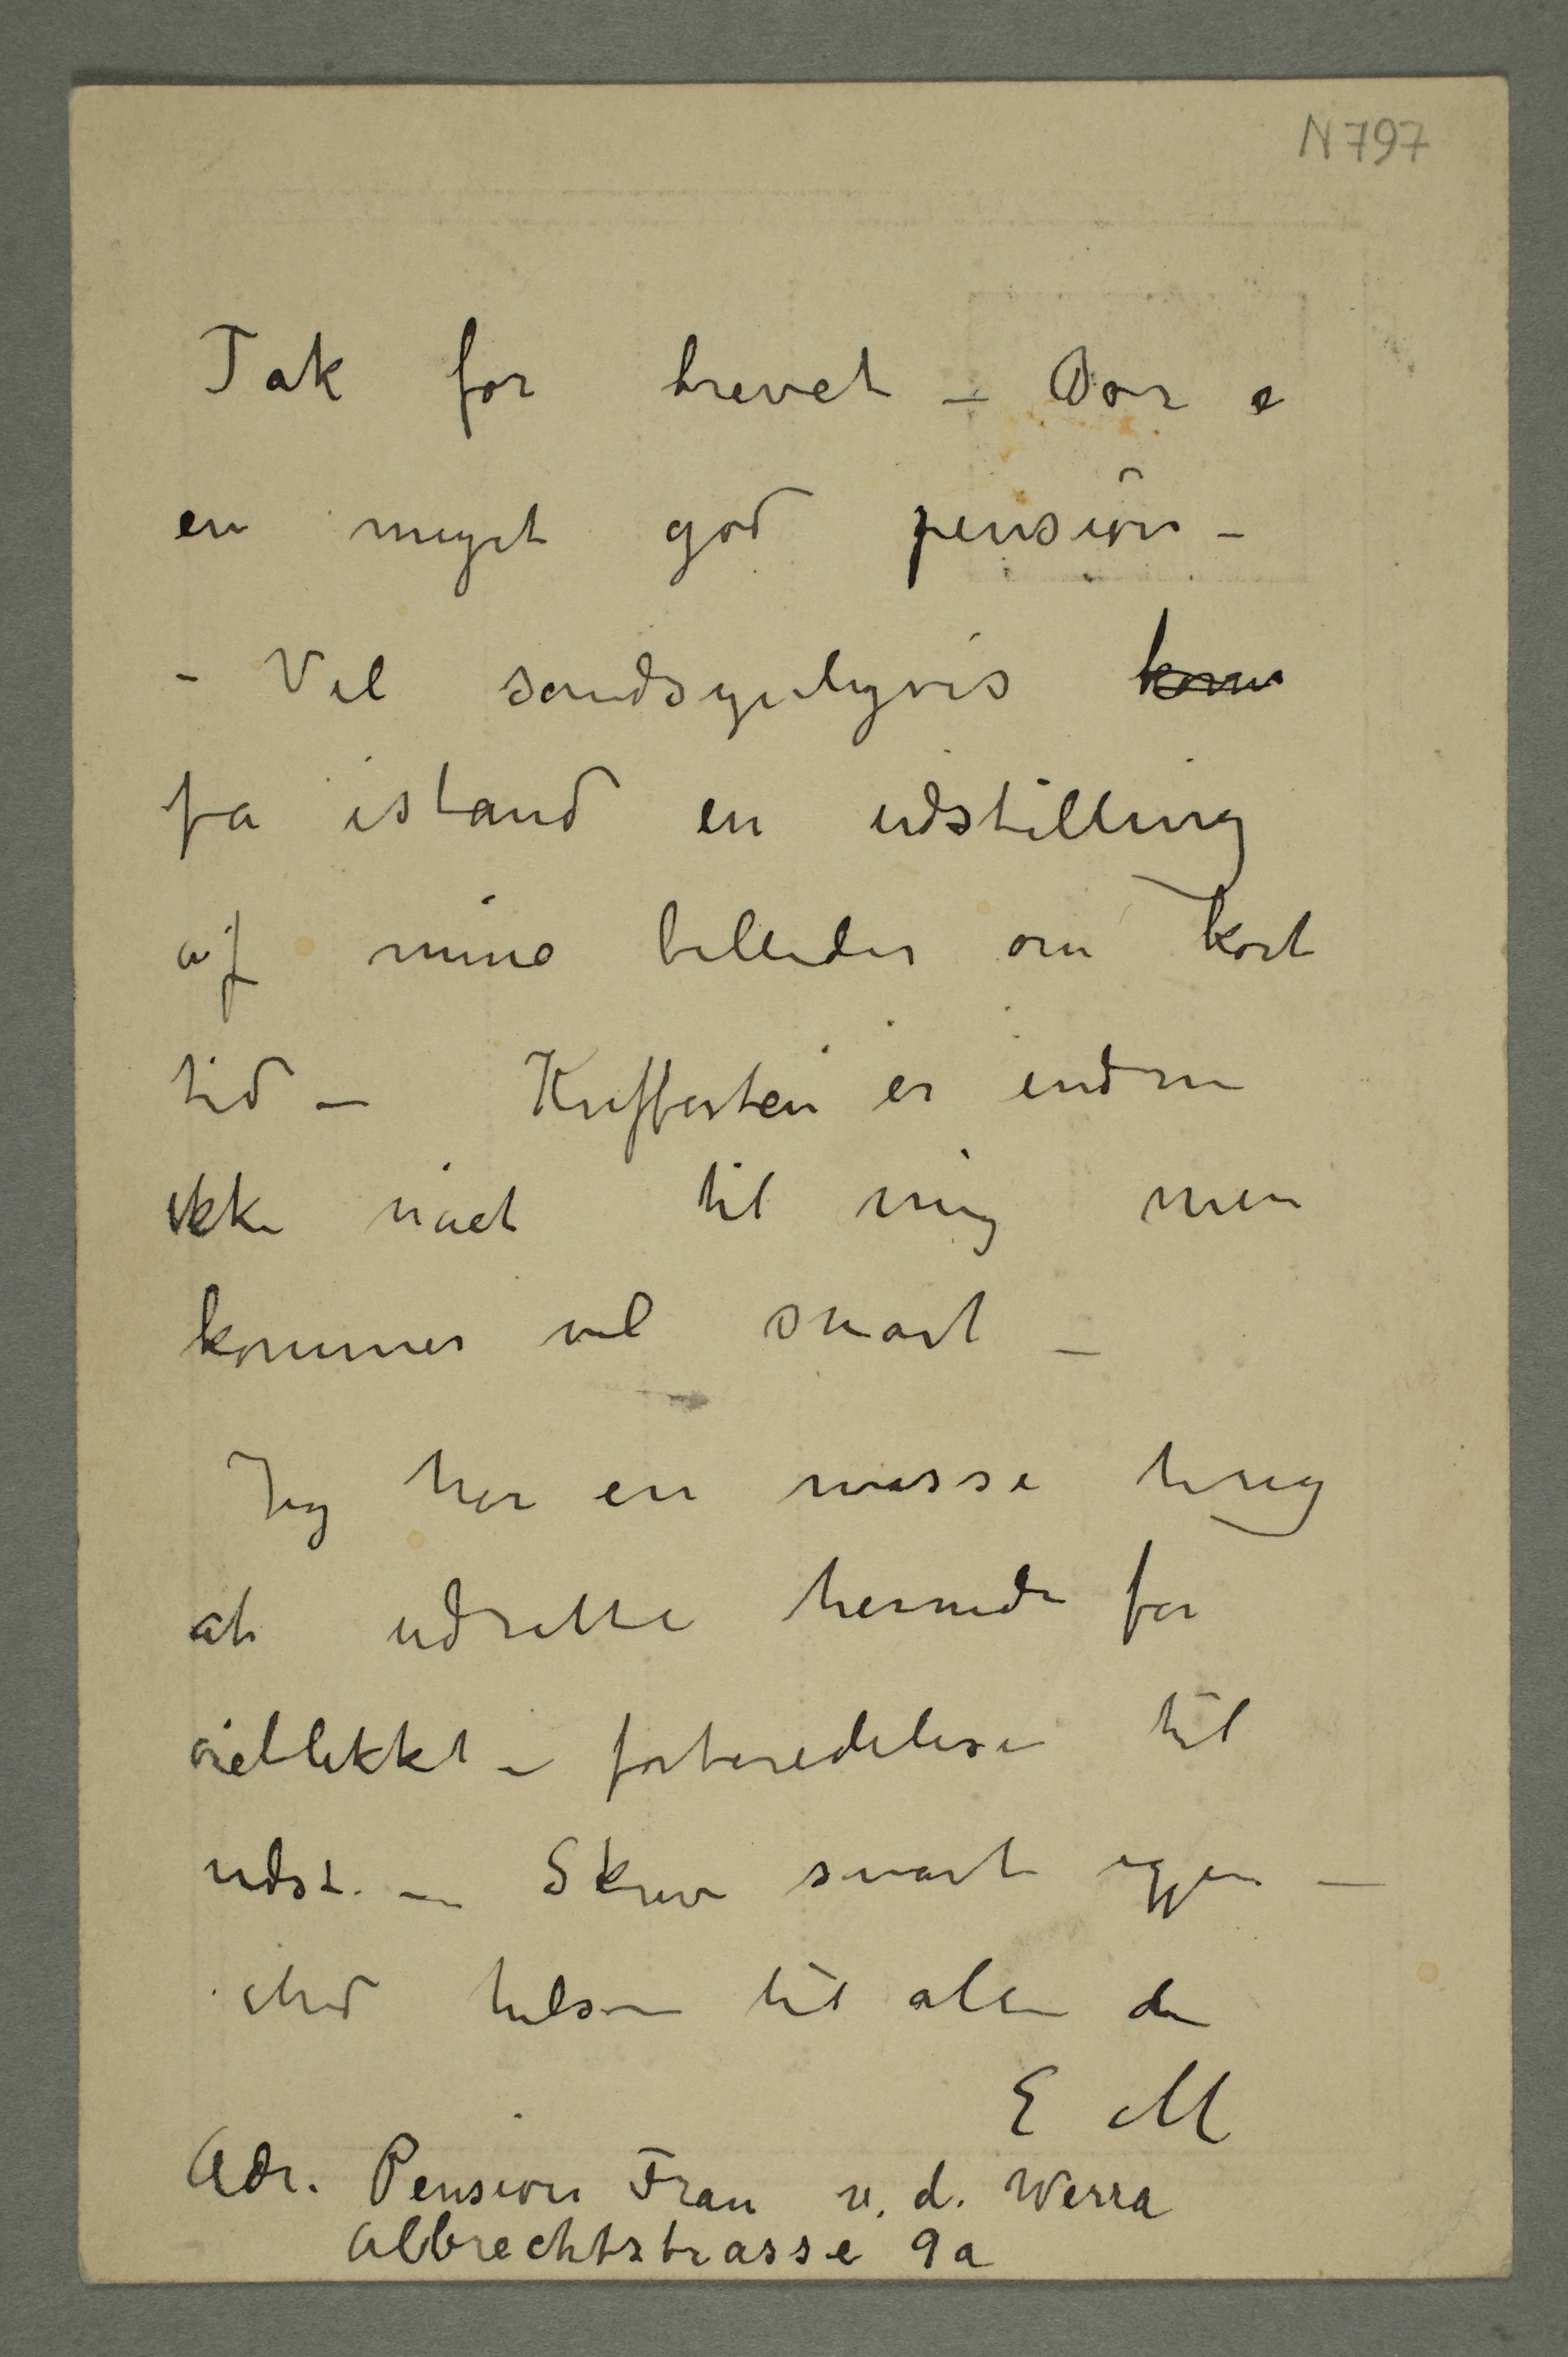 N 797
Tak for brevet – Bor e
en meget god pension –
– Vil sandsynligvis kom
få istand en udstilling
af mine billeder om kort
tid – Kufferten er endnu
ikke nået til mig men
kommer vel snart –
Jeg har en masse ting
at udrette hernede for
øieblikket – forberedelser til
udst. – Skriv snart igjen –
Med hilsen til alle din
E M
Adr. Pension Frau v. d. Werra
Albrechtstrasse 9a